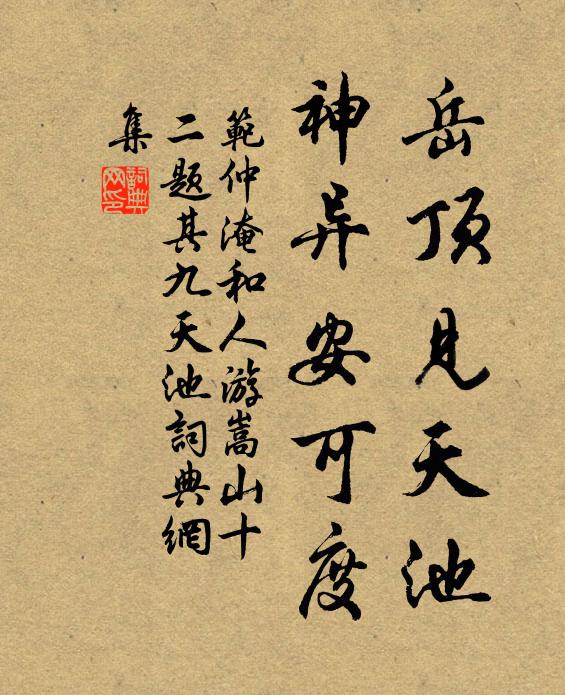 岳顶見天池
神异安可度
範仲淹和人游嵩山十
二题其九天池詞典網
集
詞典
网印